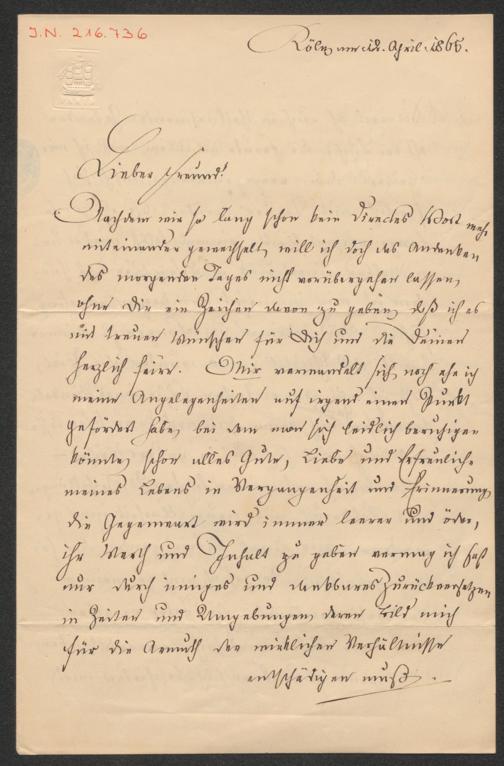 I.N. 216.736
Köln am 12. April 1865.
Lieber Freund!
Nachdem wir so lang schon kein directes Wort mehr
miteinander gewechselt, will ich doch das Andenken
des morgenden Tages nicht vorübergehen lassen,
ohne Dir ein Zeichen davon zu geben, daß ich es
mit treuen Wünschen für Dich und die Deinen
herzlich feire. Mir verwandelt sich, noch ehe ich
meine Angelegenheiten auf irgend einen Punkt
gefördert habe, bei dem man sich leidlich beruhigen
könnte, schon alles Gute, Liebe und Erfreuliche
meines Lebens in Vergangenheit und Erinnerung,
die Gegenwart wird immer leerer und öder,
ihr Werth und Inhalt zu geben vermag ich fast
nur durch inniges und dankbares Zurückversetzen
in Zeiten und Umgebungen, deren Bild mich
für die Armuth der wirklichen Verhältnisse
entschädigen muß.